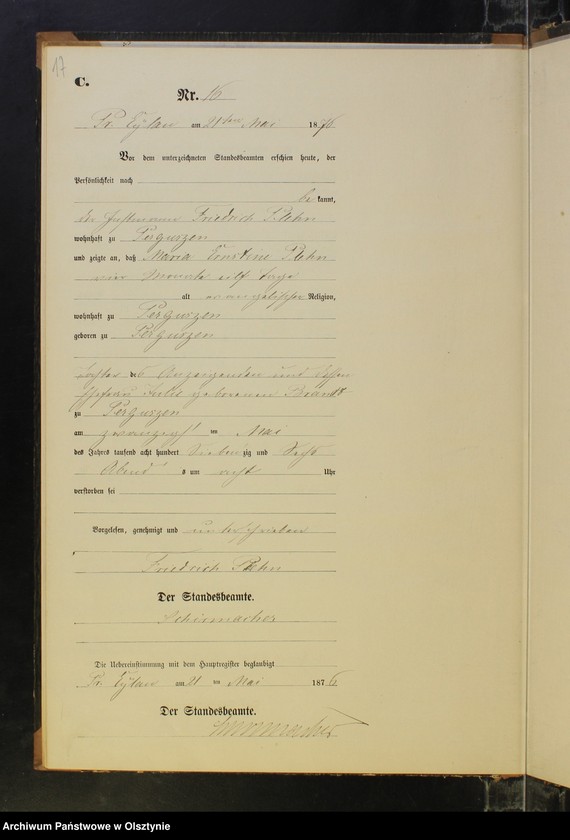 17
C.
Nr. 16
Pr. Eylau am 21ten Mai 1876
Vor dem unterzeichneten Standesbeamten erschien heute, der
Persönlichkeit nach
be kannt,
der Friedrich
wohnhaft zu Perguszen
und zeigte an, daß Maria Ernstine
vier Monate elf Tage
alt evangelischer Religion,
wohnhaft zu Perguszen
geboren zu Perguszen
Tochter des Anzeigenden und dessen
Ehefrau geborenen Brandt
zu Perguszen
am zwanzigst en Mai
des Jahres tausend acht hundert Sieben zig und Sechs
Abend s um acht Uhr
verstorben sei
Vorgelesen, genehmigt und unterschrieben
Friedrich
Der Standesbeamte.
Schirmacher
Die Uebereinstimmung mit dem Hauptregister beglaubigt
Pr. Eylau am 21 ten Mai 1876
Der Standesbeamte.
Schirmacher
Archiwum Państwowe w Olsztynie